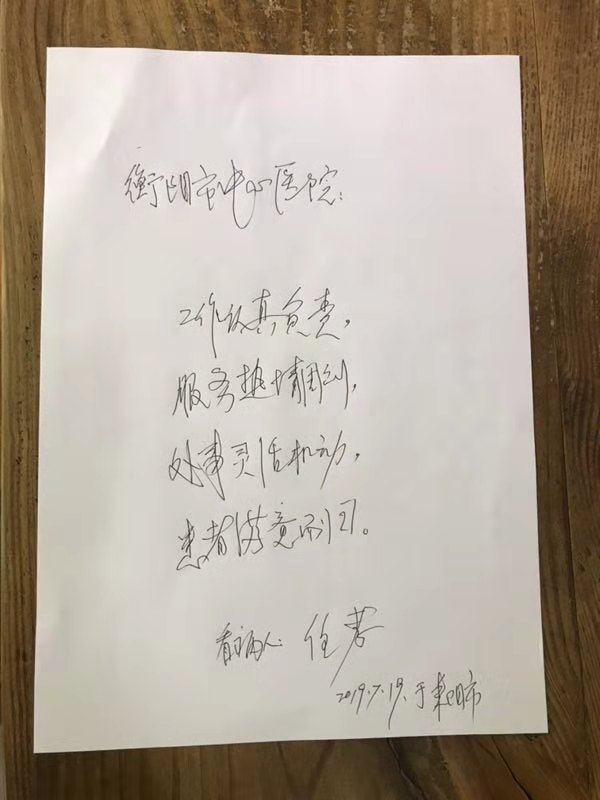 衡阳市中心医院:
工作认真负责,
服务热情周到,
处事灵活机动,
患者满意而归。
看病人: 任
2019.7.19.于耒阳市